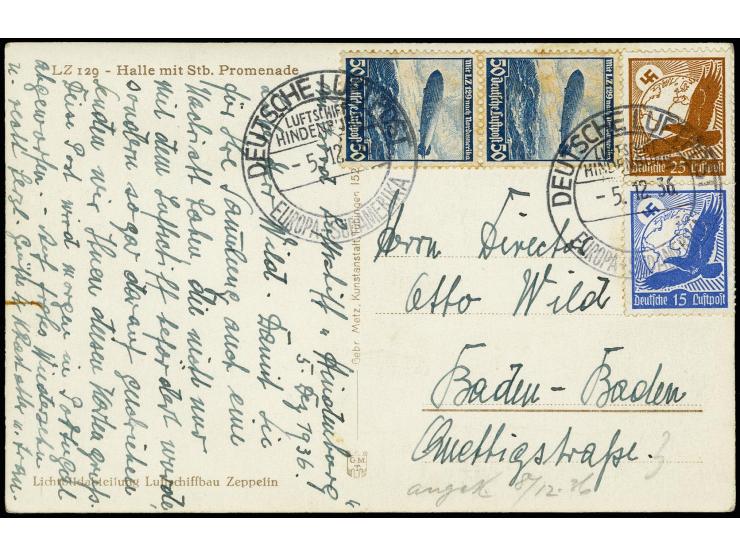 LZ 129 - Halle mit Stb. Promenade
Luftschiff "Hindenburg"
5. Dez 1936.
Herr Wild. Damit Sie
für Ihre Sammlung auch eine
Nachricht haben, die nicht nur
mit dem Luftschiff befördert wurde,
sondern sogar darauf geschrieben
senden wir Ihnen diesen Kartengruß.
Die Post wird morgen in Portugal
abgeworfen. Auf frohes Wiedersehn
u. recht herzl. Grüße
Lichtbildabteilung Luftschiffbau Zeppelin
Gebr. Metz, Kunstanstalt, Tübingen 152
DEUTSCHE LUFTPOST
LUFTSCHIFF
HINDENBURG
- 5.12.36
EUROPA-SÜDAMERIKA
50 Deutsche Luftpost 50
mit LZ 129 nach Nordamerika
50 Deutsche Luftpost 50
mit LZ 129 nach Nordamerika
DEUTSCHE LUFTPOST
HINDENBURG
- 5.12.36
EUROPA-SÜDAMERIKA
Deutsche 25 Luftpost
Deutsche 15 Luftpost
Herrn Director
Otto Wild
Baden-Baden
Quettigstraße. 3
angek. 8/12.36